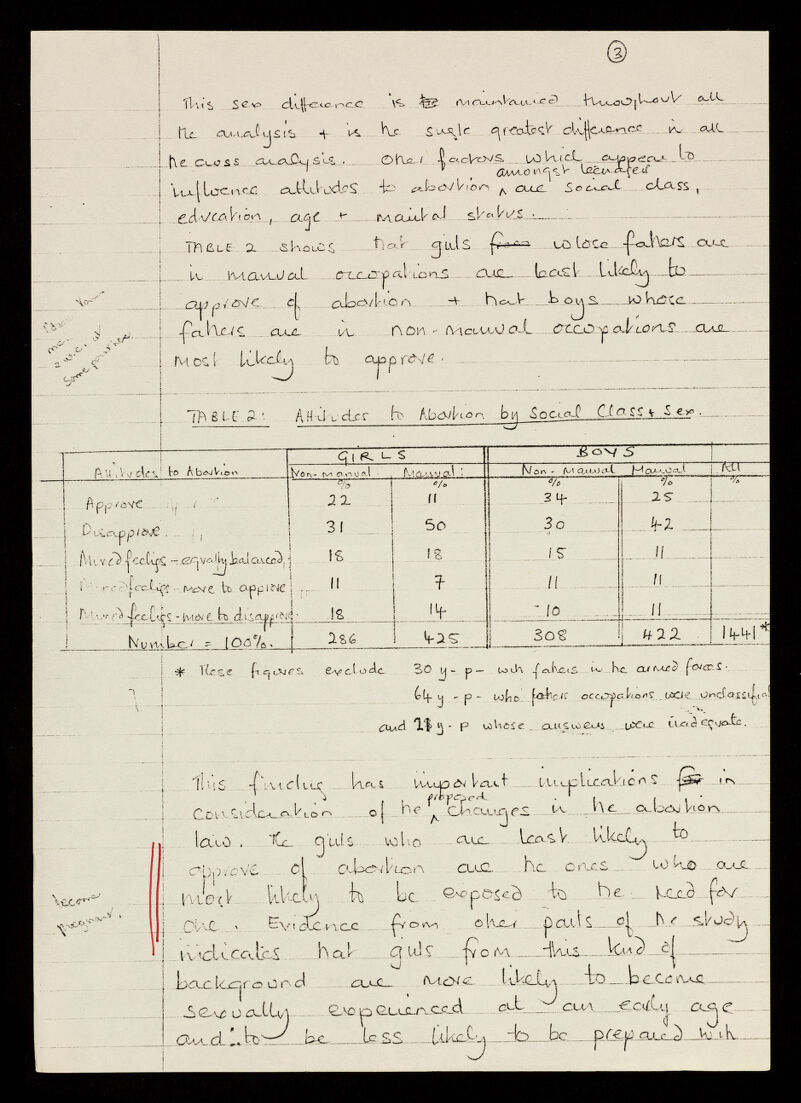 3
This sex difference is maintained throughout all
the analysis + is the single greatest difference in all
the cross analysis. Other factors which appear to
amongst teenagers
influence attitudes to abortion ^ are social class,
education, age + marital status.
TABLE 2 shows that girls from whose fathers are
in manual occupations are least likely to
approve of abortion + that boys whose
fathers are in non-manual occupations are
most likely to approve.
TABLE 2: Attitudes to Abortion by Social Class + Sex.
GIRLS BOYS
Attitudes to Abortion Non-manual Manual: Non-manual Manual All
% % % % %
Approve 22 11 34 25
Disapprove 31 50 30 42
Mixed feelings - equally balanced 18 18 15 11
Mixed feelings - more to approve 11 7 11 11
Mixed feelings - more to disapprove 18 14 10 11
Number = 100%. 286 425 308 422 1441*
* These figures exclude 30 y-p- with fathers in the armed forces.
64 y-p- who fathers occupations were unclassified
and y-p whose answers were inadequate.
This finding has important implications for in
proposed
consideration of the ^ changes in the abortion
law. The girls who are least likely to
approve of abortion are the ones who are
most likely to be exposed to the need for
one. Evidence from other parts of the study
indicates that girls from this kind of
background are more likely to become
sexually experienced at an early age
and to be less likely to be prepared with
become
pregnant.